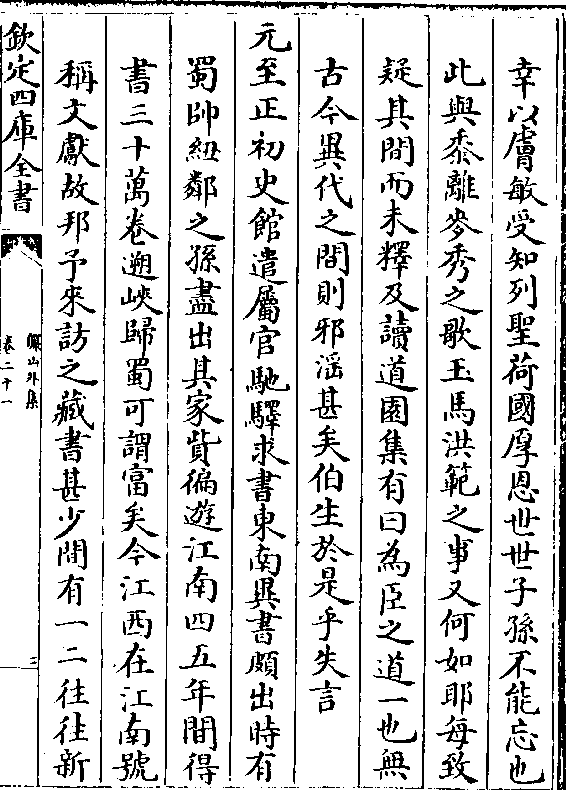 幸以膚敏受知列聖荷國厚恩世世子孫不能忘也
此與黍離麥秀之歌玉馬洪範之事又何如耶每致
疑其間而未釋及讀道園集有曰為臣之道一也無
古今異代之間則邪滛甚矣伯生於是乎失言
元至正初史館遣屬官馳驛求書東南異書頗出時有
蜀帥紐鄰之孫盡出其家貲徧遊江南四五年間得
書三十萬卷遡峽歸蜀可謂富矣今江西在江南號
稱文獻故邦予來訪之藏書甚少間有一二往往新
欽定四庫全書
儼山外集
卷二十一
三